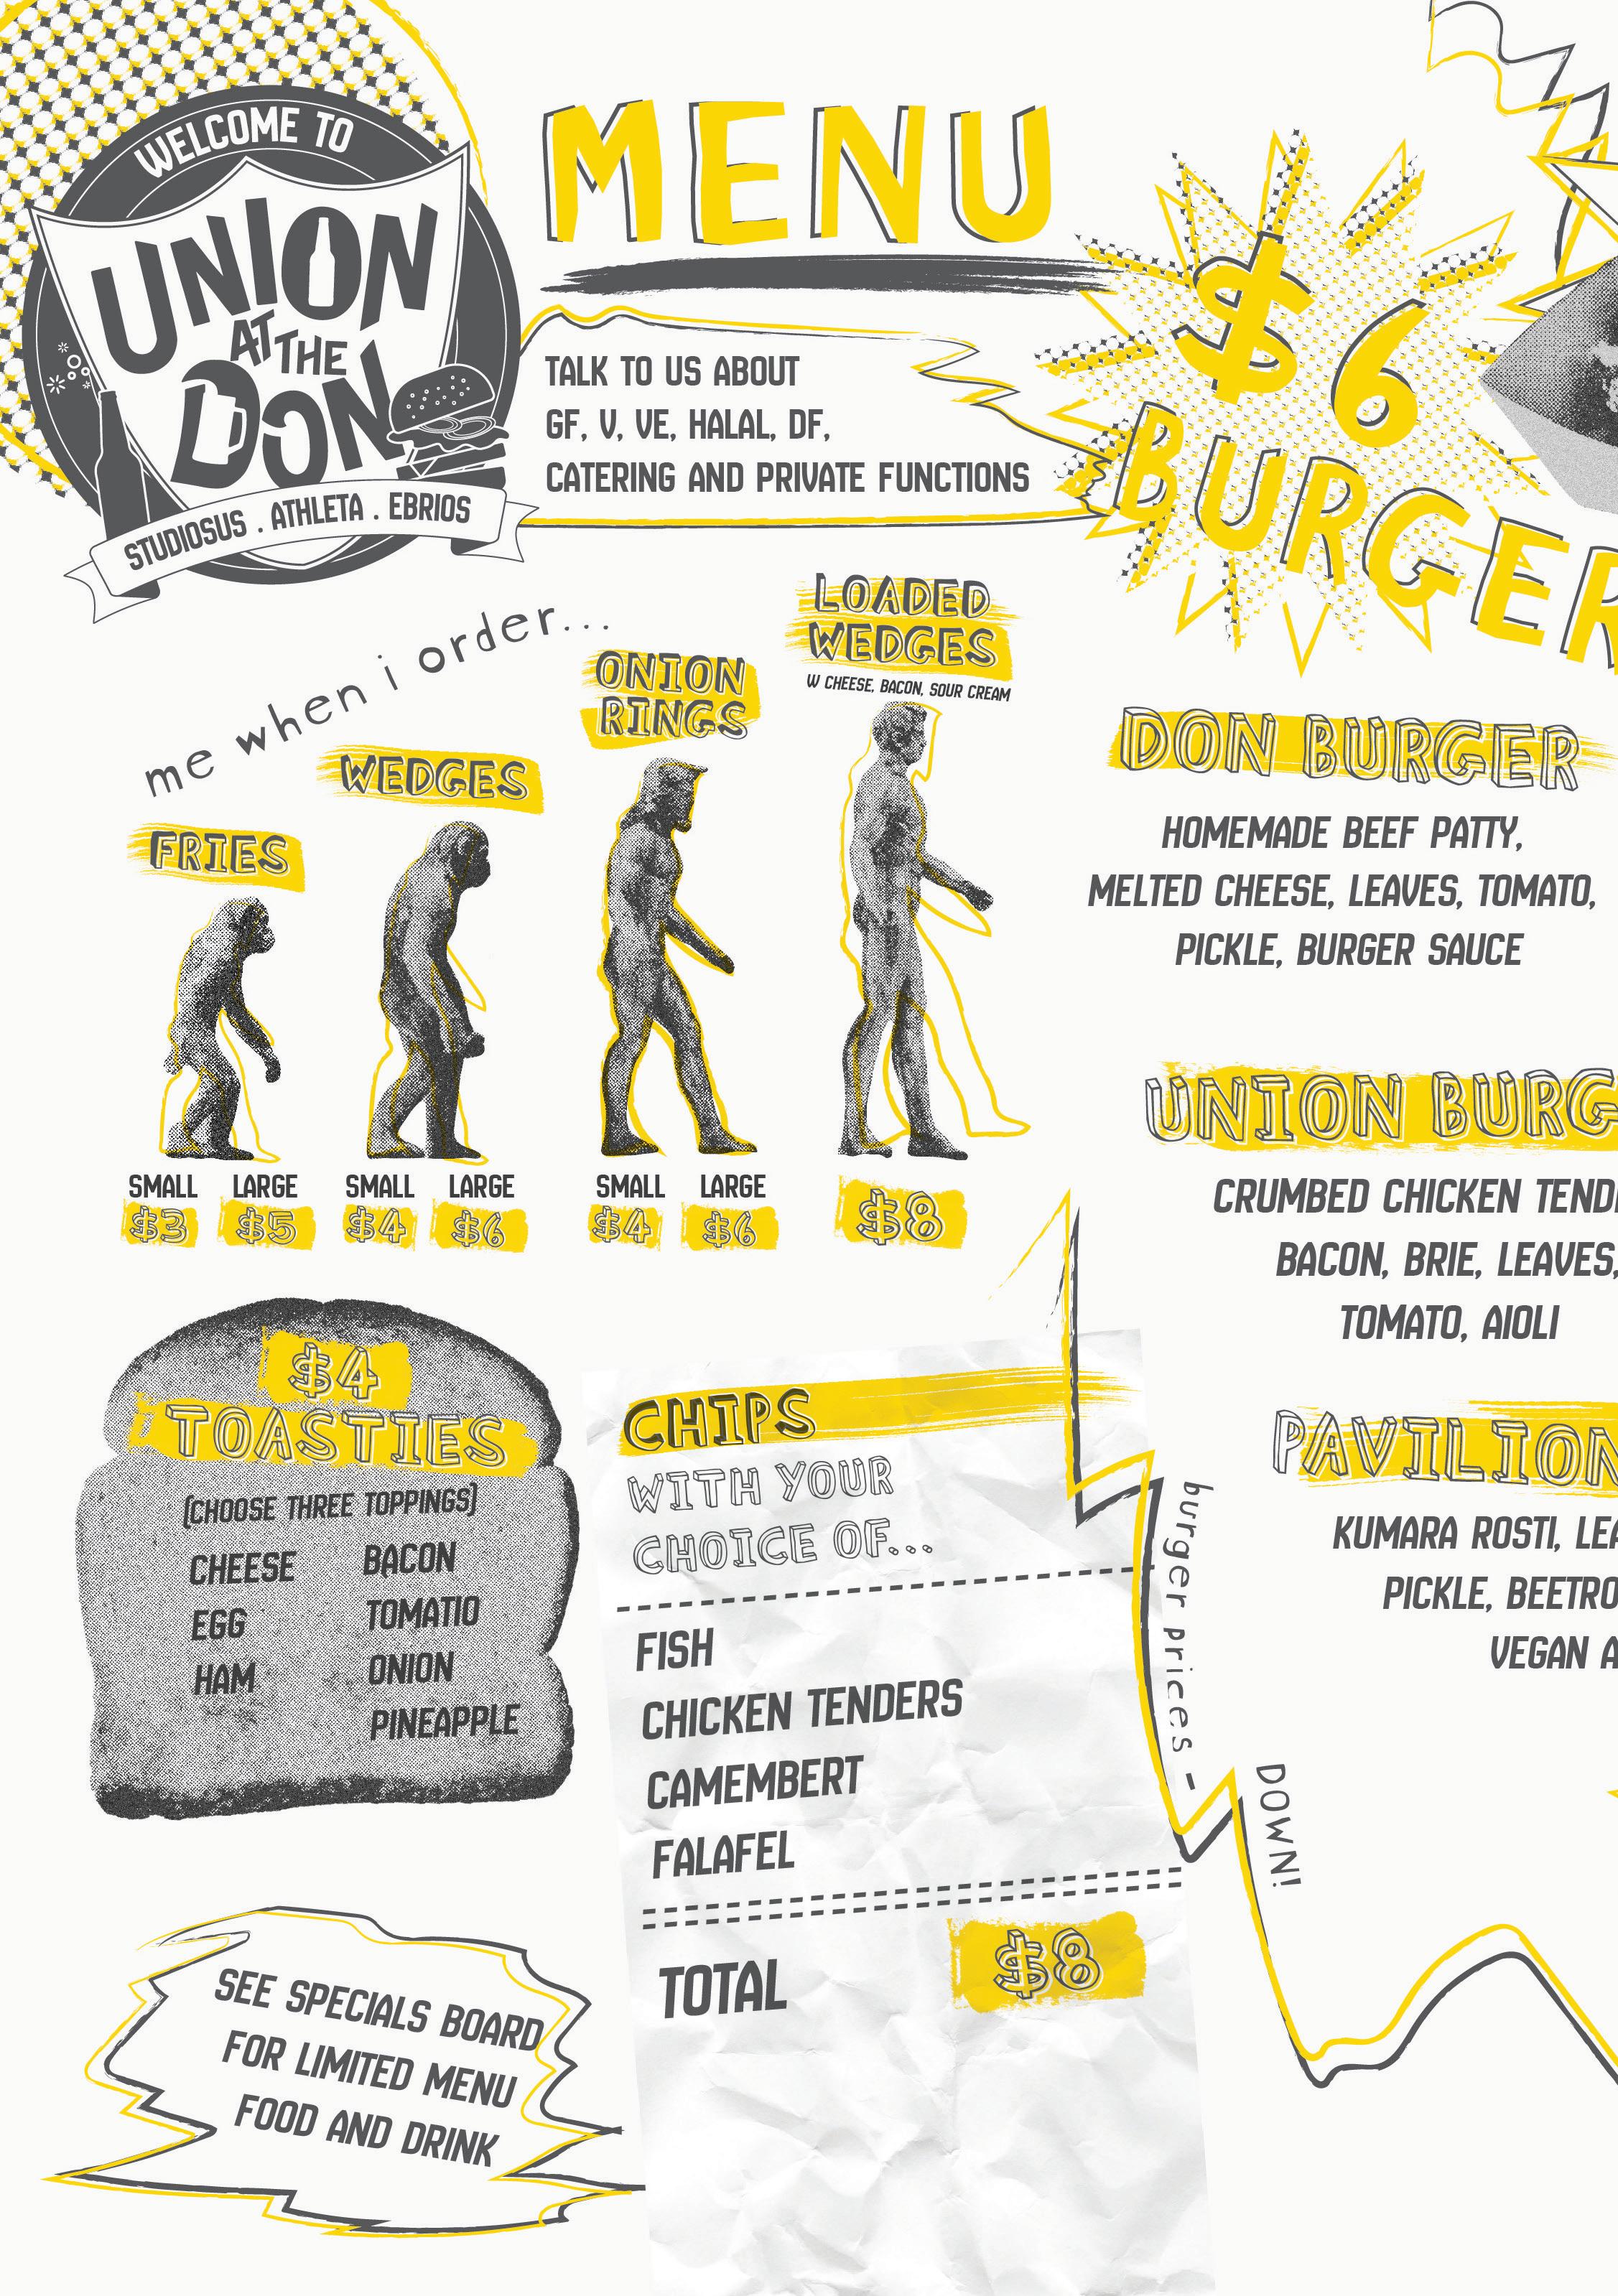 WELCOME TO
UNION
AT THE
DON
STUDIOSUS . ATHLETA . EBRIOS
MENU
TALK TO US ABOUT
GF, V, VE, HALAL, DF,
CATERING AND PRIVATE FUNCTIONS
$6
BURGER
me when i order...
FRIES
WEDGES
ONION
RINGS
LOADED
WEDGES
W CHEESE, BACON, SOUR CREAM
SMALL LARGE SMALL LARGE SMALL LARGE
$3 $5 $4 $6 $4 $6 $8
DON BURGER
HOMEMADE BEEF PATTY,
MELTED CHEESE, LEAVES, TOMATO,
PICKLE, BURGER SAUCE
UNION BURG
CRUMBED CHICKEN TENDE
BACON, BRIE, LEAVES,
TOMATO, AIOLI
PAVILION
KUMARA ROSTI, LEA
PICKLE, BEETRO
VEGAN A
$4
TOASTIES
(CHOOSE THREE TOPPINGS)
CHEESE BACON
EGG TOMATIO
HAM ONION
PINEAPPLE
CHIPS
WITH YOUR
CHOICE OF...
FISH
CHICKEN TENDERS
CAMEMBERT
FALAFEL
TOTAL $8
burger prices -
DOWN!
SEE SPECIALS BOARD
FOR LIMITED MENU
FOOD AND DRINK